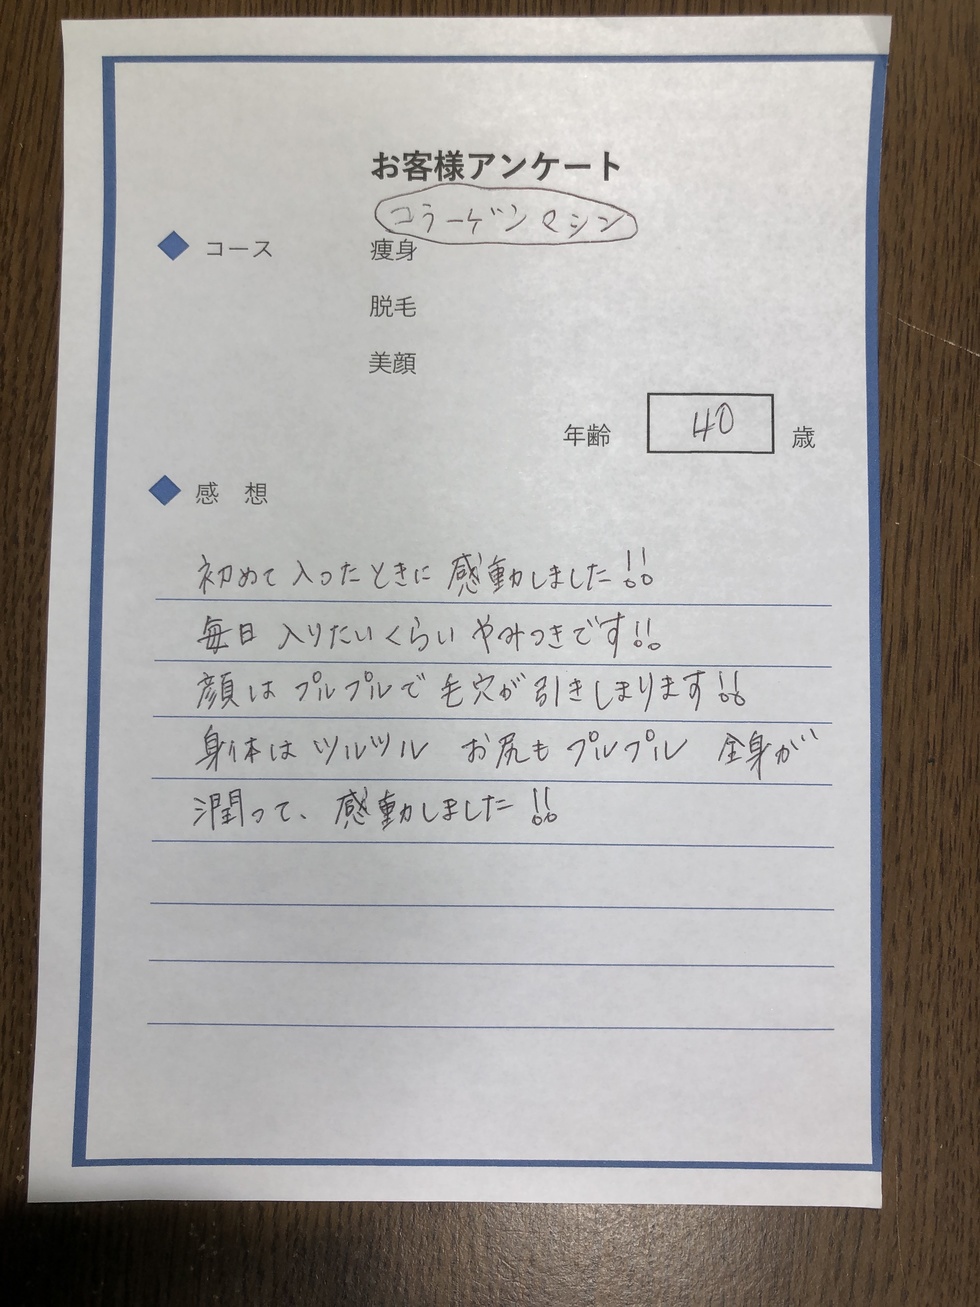 お客様アンケート
コラーゲンマシン
◆ コース 痩身
脱毛
美顔
年齢 40 歳
◆ 感 想
初めて入ったときに感動しました!!
毎日入りたいくらいやみつきです!!
顔はプルプルで毛穴が引きしまります!!
身体はツルツル お尻もプルプル 全身が
潤って、感動しました!!